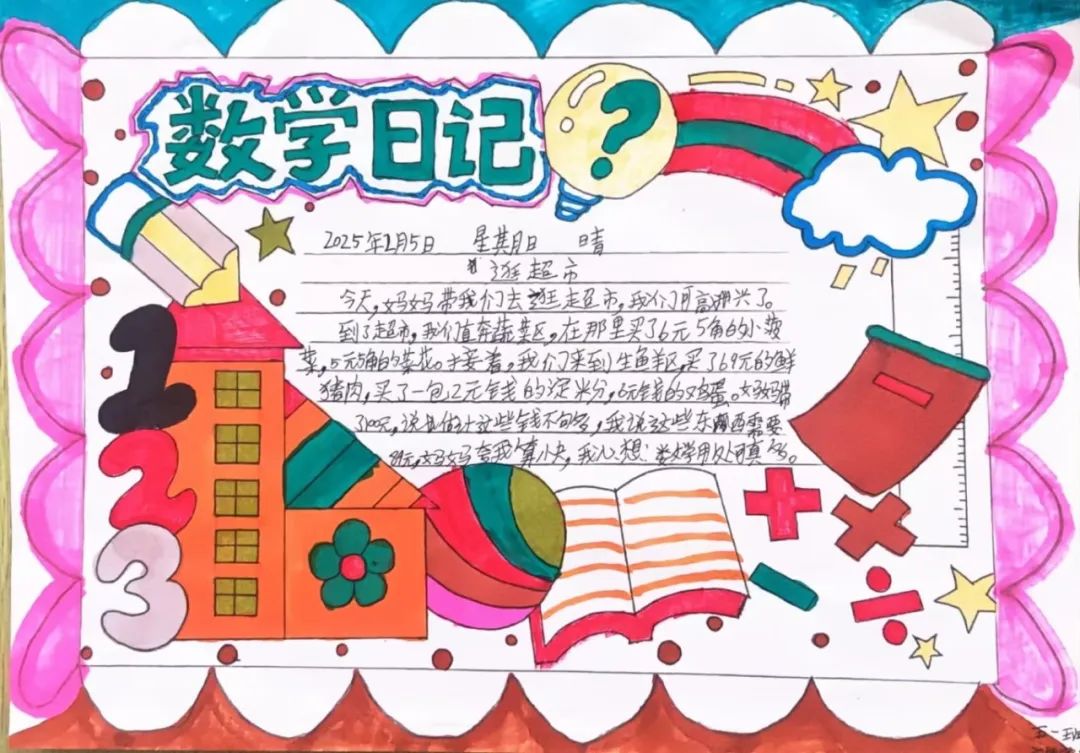 数学日记
?
2025年2月5日 星期日 晴
逛超市
今天,妈妈带我们去逛超市,我们可高兴了。
到了超市,我们直奔蔬菜区,在那里买了6元5角的小菠
菜,5元5角的菜花。接着,我们来到生鱼羊区,买了69元的鲜
猪肉,买了一包2元钱的淀米分,6元钱的鸡蛋。妈妈带
100元,说估计这些钱不够,我说这些东西需要
89元,妈妈夸我算小夬,我心想:数学用处可真多。
1
2
3
五一班